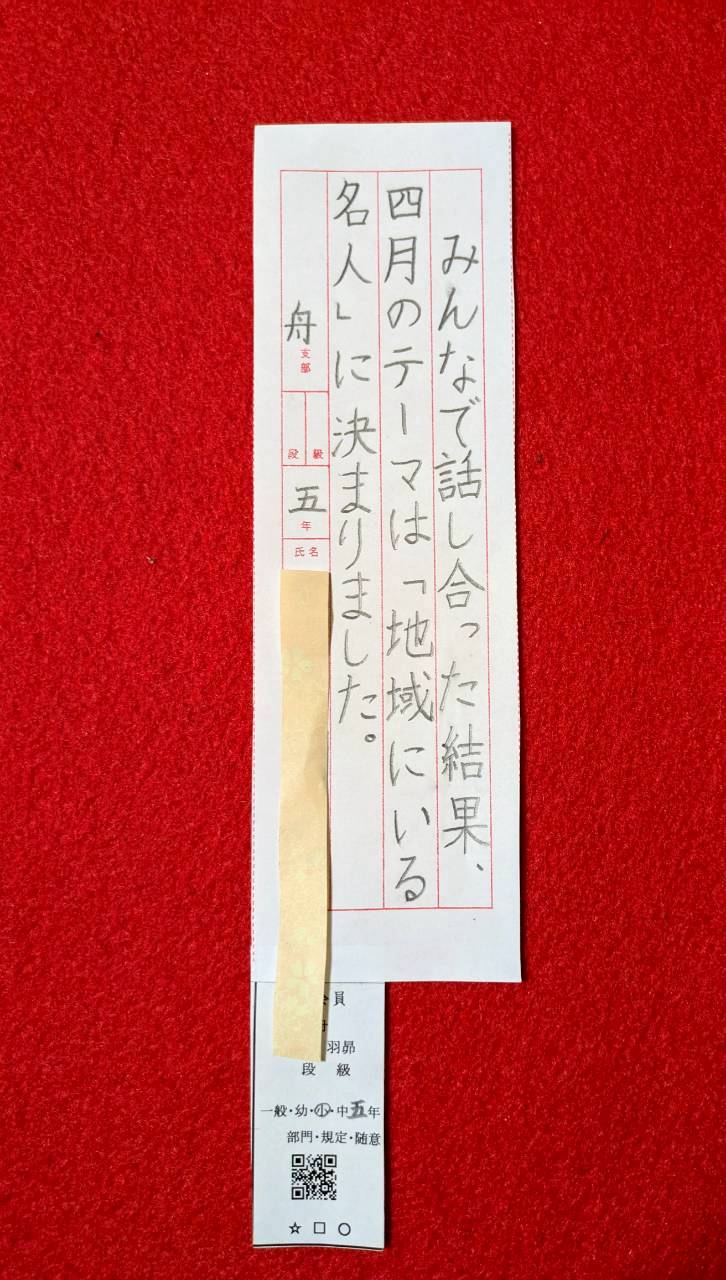 みんなで話し合った結果、
四月のテーマは「地域にいる
名人」に決まりました。
舟支部
段 級
五年
氏名
員
羽昴
段 級
一般・幼・小・中五年
部門・規定・随意
☆ □ ○